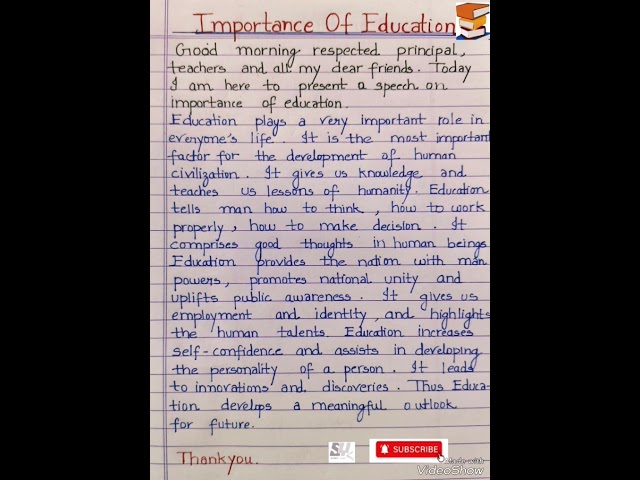 Importance Of Education
Good morning respected principal,
teachers and all my dear friends. Today
I am here to present a speech on
importance of education.
Education plays a very important role in
everyone's life. It is the most important
factor for the development of human
civilization. It gives us knowledge and
teaches us lessons of humanity. Education
tells man how to think, how to work
properly, how to make decision. It
comprises good thoughts in human beings
Education provides the nation with man
powers, promotes national unity and
uplifts public awareness. It gives us
employment and identity, and highlights
the human talents. Education increases
self-confidence and assists in developing
the personality of a person. It leads
to innovations and discoveries. Thus Educa-
tion develops a meaningful outlook
for future.
SUBSCRIBE
Made with
VideoShow
Thankyou.